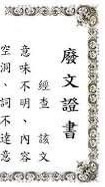 廢文證書
經查該文
意味不明、內容
空洞、詞不達意